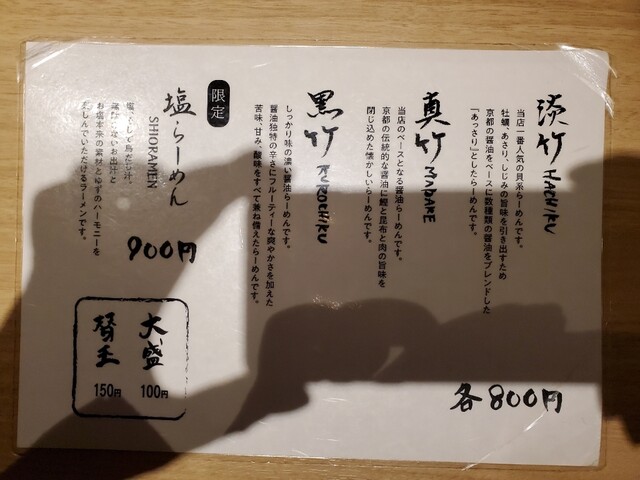 淡竹 HACHIKU
当店一番人気の貝系らーめんです。
牡蠣、あさり、しじみの旨味を引き出すため
京都の醤油をベースに数種類の醤油をブレンドした
「あっさり」としたらーめんです。
真竹 MADAKE
当店のベースとなる醤油らーめんです。
京都の伝統的な醤油に鰹と昆布と肉の旨味を
閉じ込めた懐かしいらーめんです。
黒竹 KUROCHIKU
しっかり味の濃い醤油らーめんです。
醤油独特の辛さにフルーティーな爽やかさを加えた
苦味、甘み、酸味をすべて兼ね備えたらーめんです。
各800円
限定
塩らーめん
SHIORAMEN
お塩本来の素材とゆずのハーモニーを
楽しんでいただけるラーメンです。
900円
大盛
100円
替玉
150円